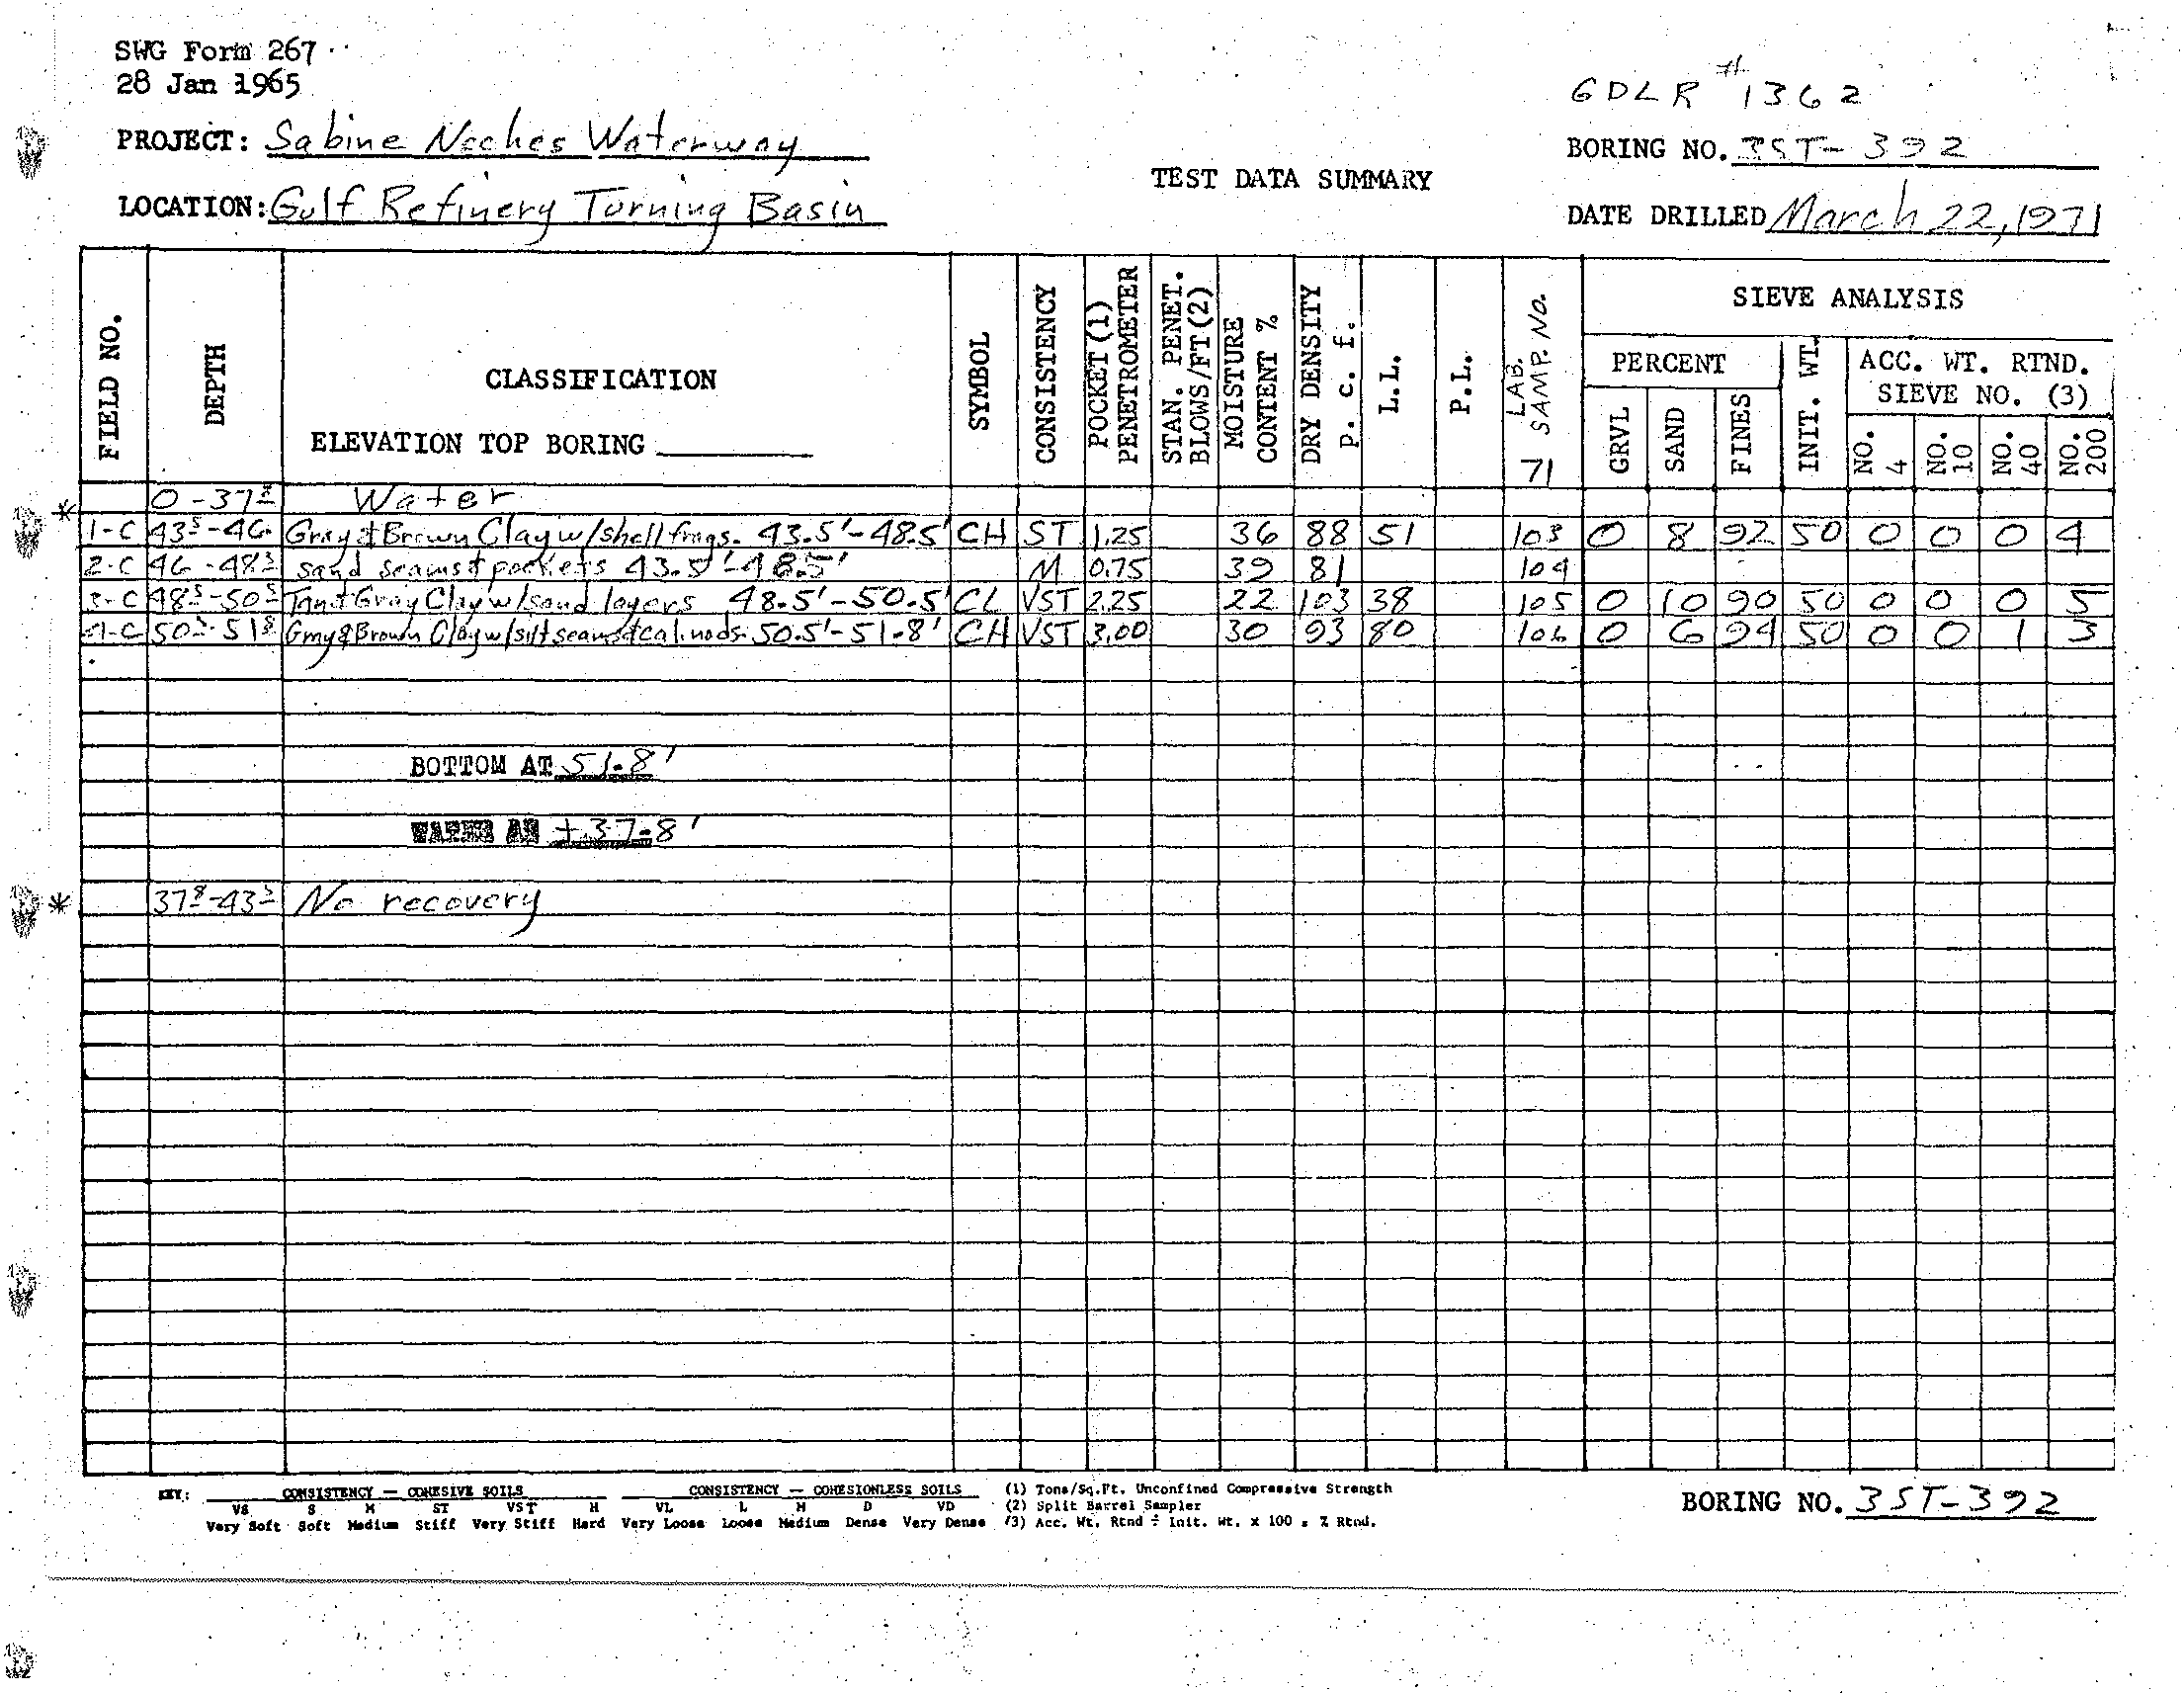 SWG Form 267
28 Jan 1965
GDLR # 1362
PROJECT: Sabine Neches Waterway
BORING NO. 3ST-392
TEST DATA SUMMARY
LOCATION: Gulf Refinery Turning Basin
DATE DRILLED March 22, 1971
FIELD NO. DEPTH CLASSIFICATION SYMBOL CONSISTENCY POCKET (1) PENETROMETER STAN. PENET. BLOWS/FT (2) MOISTURE CONTENT % DRY DENSITY P. c. f. L.L. P.L. LAB. SAMP. No. 71
SIEVE ANALYSIS
PERCENT INIT. WT. ACC. WT. RTND. SIEVE NO. (3)
GRVL SAND FINES NO. 4 NO. 10 NO. 40 NO. 200
ELEVATION TOP BORING
* 0-37.8 Water
1-C 43.5-46 Gray & Brown Clay w/shell frags. 43.5'-48.5' CH ST 1.25 36 88 51 103 0 8 92 50 0 0 0 4
2-C 46-48.5 sand seams & pockets 43.5'-48.5' M 0.75 39 81 104
3-C 48.5-50.5 Tan & Gray Clay w/sand layers 48.5'-50.5' CL VST 2.25 22 103 38 105 0 10 90 50 0 0 0 5
4-C 50.5-51.8 Gray & Brown Clay w/silt seams & cal. nods. 50.5'-51.8' CH VST 3.00 30 93 80 106 0 6 94 50 0 0 1 3
BOTTOM AT 51.8'
+37.8'
* 37.8-43.5 No recovery
KEY: CONSISTENCY — COHESIVE SOILS CONSISTENCY — COHESIONLESS SOILS (1) Tons/Sq.Ft. Unconfined Compressive Strength
VS S M ST VST H VL L M D VD (2) Split Barrel Sampler
Very Soft Soft Medium Stiff Very Stiff Hard Very Loose Loose Medium Dense Very Dense (3) Acc. Wt. Rtnd ÷ Init. Wt. x 100 = % Rtnd.
BORING NO. 3ST-392